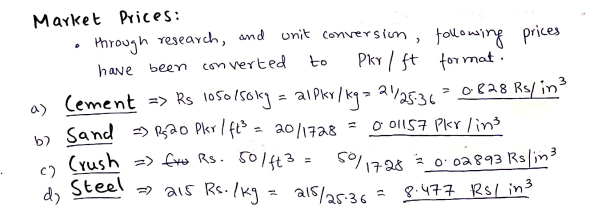 Market Prices:
• through research, and unit conversion, following prices
have been converted to Pkr / ft format.
a) Cement => Rs 1050/50kg = 21Pkr/kg = 21/25.36 = 0.828 Rs/in³
b) Sand => Rs20 Pkr/ft³ = 20/1728 = 0.01157 Pkr/in³
c) Crush => Rs. 50/ft3 = 50/1728 = 0.02893 Rs/in³
d) Steel => 215 Rs./kg = 215/25.36 = 8.477 Rs/in³